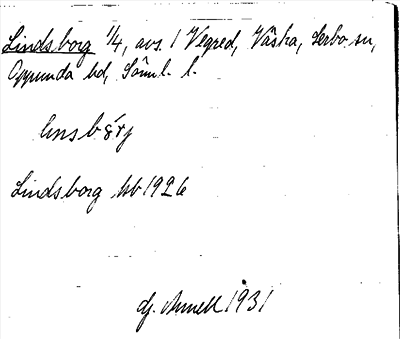 Lindsborg 1/4, avs. f Vegred, Västra, Lerbo sn,
Oppunda hd, Söml. l.
linsbǫrj
Lindsborg hb 1926
Arnell 1931